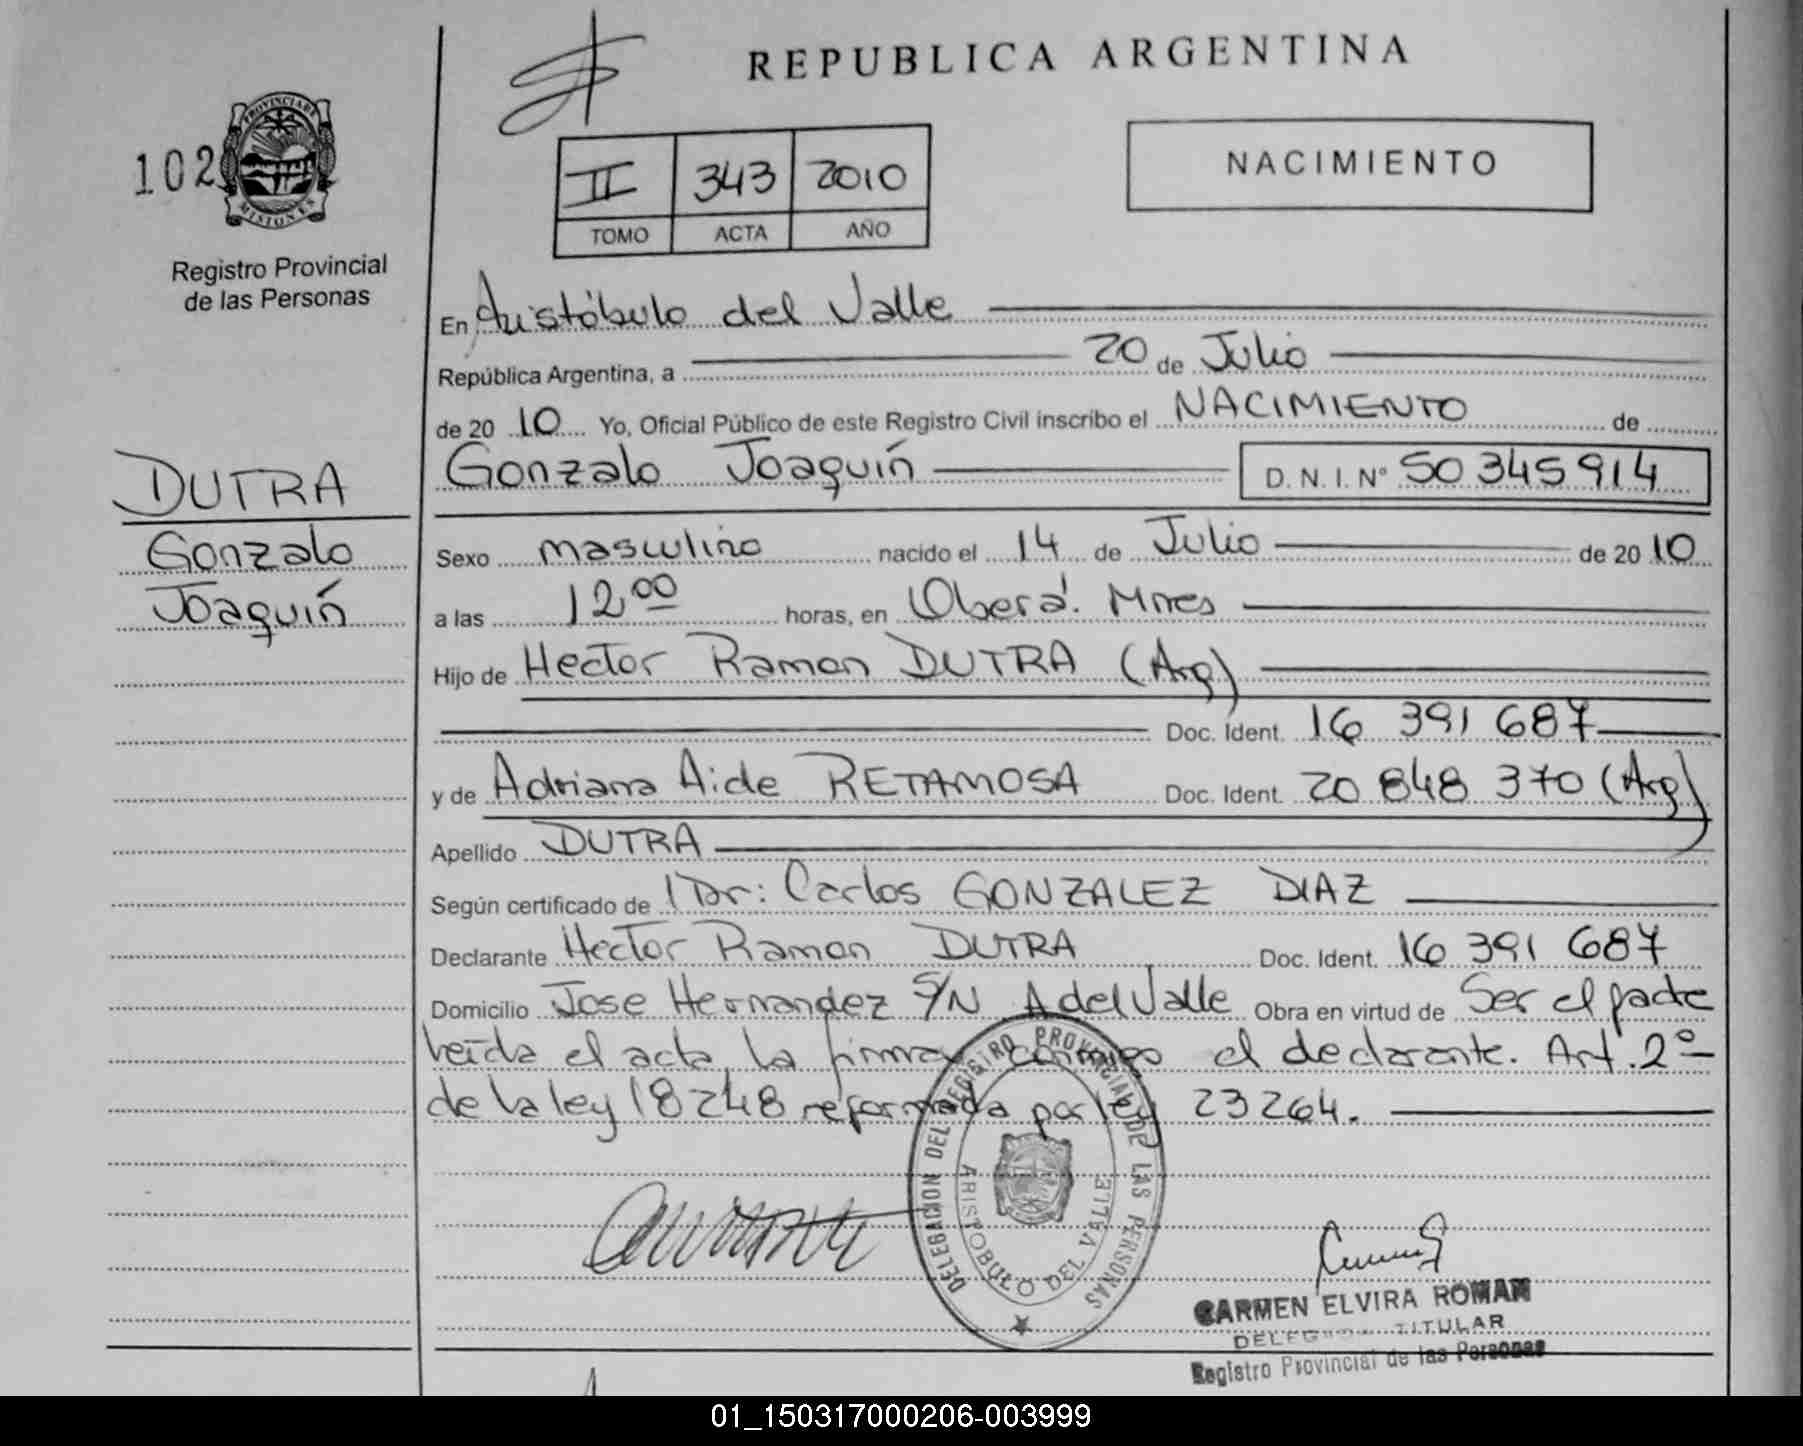 REPUBLICA ARGENTINA
102
PROVINCIA DE
MISIONES
Registro Provincial
de las Personas
II 343 2010
TOMO ACTA AÑO
NACIMIENTO
En Aristóbulo del Valle
República Argentina, a 20 de Julio
de 20 10 Yo, Oficial Público de este Registro Civil inscribo el NACIMIENTO de
Gonzalo Joaquín D. N. I. Nº 50 345 914
DUTRA
Gonzalo
Joaquín
Sexo masculino nacido el 14 de Julio de 20 10
a las 12 00 horas, en Oberá. Mnes
Hijo de Hector Ramon DUTRA (Arg)
Doc. Ident. 16 391 687
y de Adriana Aide RETAMOSA Doc. Ident. 20 848 370 (Arg)
Apellido DUTRA
Según certificado de Dr: Carlos GONZALEZ DIAZ
Declarante Hector Ramon DUTRA Doc. Ident. 16 391 687
Domicilio Jose Hernandez S/N A del Valle Obra en virtud de Ser el padre
leída el acta, la firma conmigo el declarante. Art. 2º
de la ley 18248 reformada por ley 23264.
DELEGACION DEL REGISTRO PROVINCIAL DE LAS PERSONAS
ARISTOBULO DEL VALLE
CARMEN ELVIRA ROMAN
TITULAR
Registro Provincial de las Personas
01_150317000206-003999